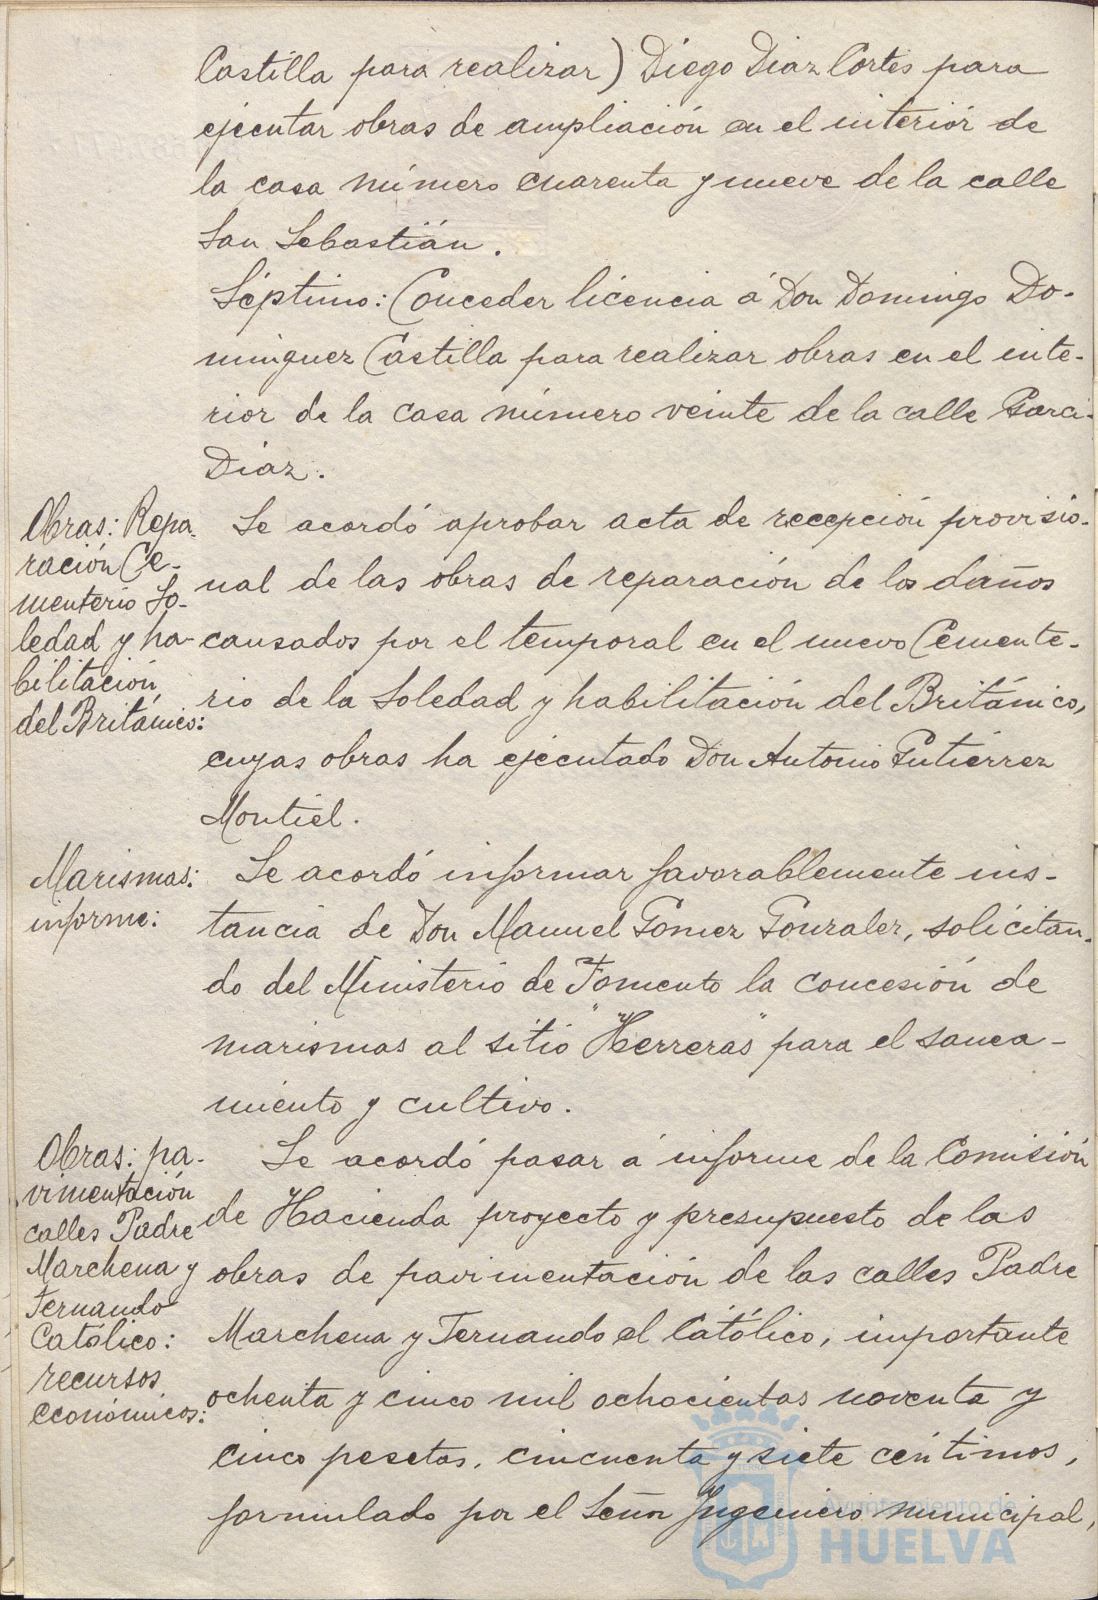 Castilla para realizar) Diego Diaz Cortés para
ejecutar obras de ampliación en el interior de
la casa número cuarenta y nueve de la calle
San Sebastián.
Séptimo: Conceder licencia á Don Domingo Do-
minguez Castilla para realizar obras en el inte-
rior de la casa número veinte de la calle Garci-
Diaz.
Obras: Repa-
ración Ce-
menterio So-
ledad y ha-
bilitación
del Británico:
Se acordó aprobar acta de recepción provisio-
nal de las obras de reparación de los daños
causados por el temporal en el nuevo Cemente-
rio de la Soledad y habilitación del Británico,
cuyas obras ha ejecutado Don Antonio Gutiérrez
Montiel.
Marismas:
informe:
Se acordó informar favorablemente ins-
tancia de Don Manuel Gomez Gonzalez, solicitan-
do del Ministerio de Fomento la concesión de
marismas al sitio "Herreras" para el sanea-
miento y cultivo.
Obras: pa-
vimentación
calles Padre
Marchena y
Fernando
Católico:
recursos
económicos:
Se acordó pasar á informe de la Comisión
de Hacienda proyecto y presupuesto de las
obras de pavimentación de las calles Padre
Marchena y Fernando el Católico, importante
ochenta y cinco mil ochocientas noventa y
cinco pesetas, cincuenta y siete céntimos,
formulado por el Señor Ingeniero municipal,
Ayuntamiento de
HUELVA